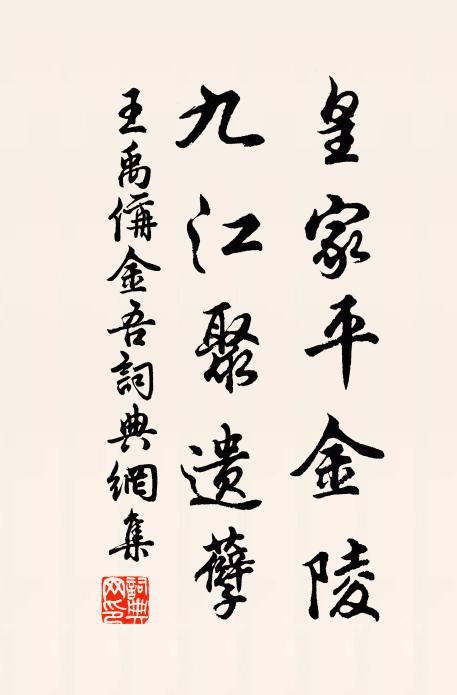 皇家平金陵
九江聚遗孽
王禹偁金吾詞典網集
詞典網印